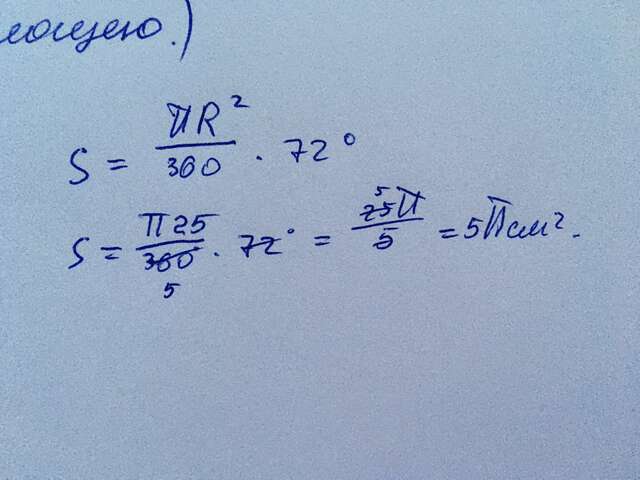 лощею.)
S = πR² / 360 · 72°
S = π25 / 360 5 · 72° = 25 5 π / 5 = 5π см².